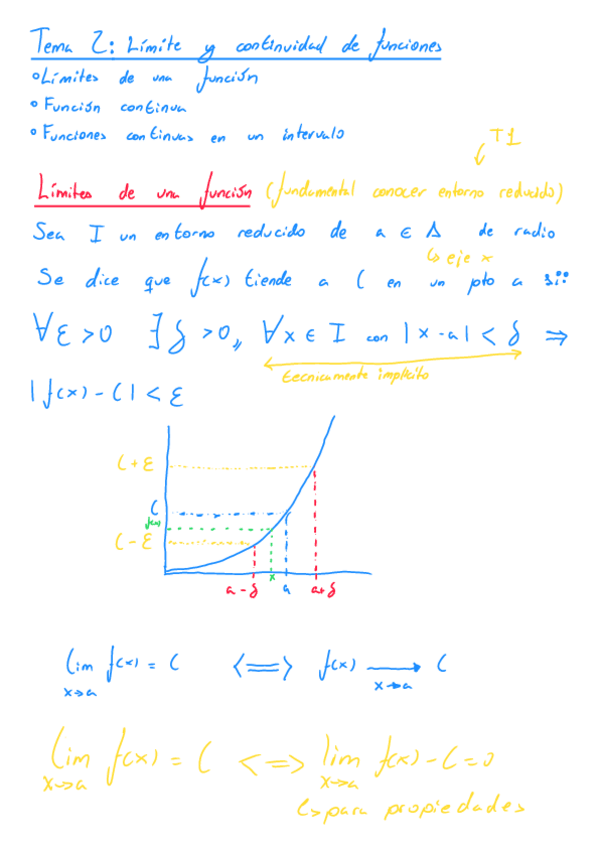 Tema 2: Límite y continuidad de funciones
• Límites de una función
• Función continua
• Funciones continuas en un intervalo
T1
Límites de una función (fundamental conocer entorno reducido)
Sea I un entorno reducido de a ∈ Δ de radio
↳ eje x
Se dice que f(x) tiende a l en un pto a sii:
∀ε>0 ∃δ>0,, ∀x∈I con |x-a|<δ ⇒
tecnicamente implícito
|f(x)-l|<ε
l+ε
l
f(x)
l-ε
a-δ x a a+δ
lim f(x) = l <=> f(x) → l
x→a x→a
lim f(x) = l <=> lim f(x)-l=0
x→a x→a
↳ para propiedades